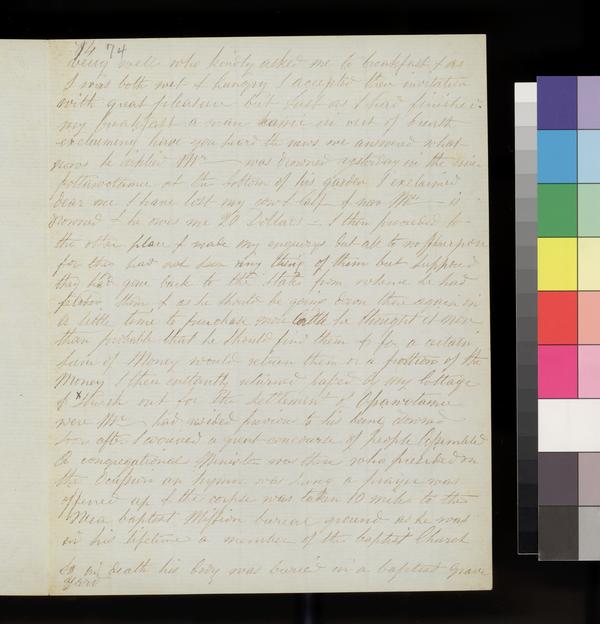 74 74
being well who kindly asked me to breakfast & as
I was both wet & hungry I accepted their invitation
with great pleasure but Just as I had finished
my breakfast a man came in out of breath
exclaiming have you heard the news we answered what
news he replied Mr — was drowned yesterday in the river
pottawotamie at the bottom of his garden I exclaimed
dear me I have lost my cow & calf & now Mr — is
drowned & he owes me 20 Dollars — I then proceeded to
the other place & make my enquirys but all to no purpose
for they had not seen any thing of them but supposed
they had gone back to the States from whence he had
them & as he should be going down there again in
a little time to purchase more Cattle he thought it more
than probable that he should find them & for a certain
Sum of Money would return them or a portion of the
Money I then instantly returned my Cottage
& Struck out for the Settlement of
were Mr — had resided previous to his being drowned
soon after I arrived a great concourse of people Assembled
A congregational Minister was there who presided on
the Occasion an hymn was Sung a prayer was
offered up & the corpse was taken 10 miles to the
baptist Mission burial ground as he was
in his lifetime a member of the baptist Church
so in death his body was buried in a baptist Grave
yard